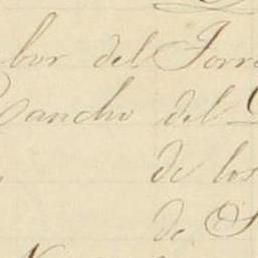 bor del Torre
Rancho del
de los
de S